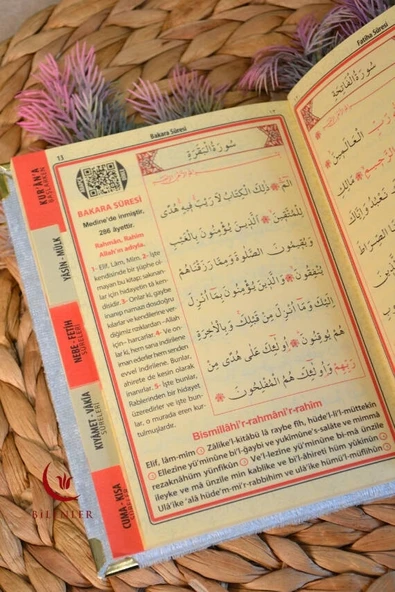 Bakara Sûresi
13
Fatiha Sûresi
سُورَةُ الْفَاتِحَةِ
سُورَةُ الْبَقَرَةِ
KUR'AN'A
BAŞLARKEN
YASİN - MÜLK
SÛRELERİ
NEBE - FETİH
SÛRELERİ
KIYAMET - VAKIA
SÛRELERİ
CUMA - KISA
BAKARA SÛRESİ
Medine'de inmiştir.
286 âyettir.
Rahmân, Rahîm
Allah'ın adıyla.
1- Elif, Lâm, Mîm. 2- İşte
kendisinde bir şüphe ol-
mayan bu kitap; sakınan-
lar için hidayetin tâ ken-
disidir. 3- Onlar ki, gaybe
inanıp namazı dosdoğru
kılarlar ve kendilerine ver-
diğimiz rızıklardan - Allah
için - harcarlar. 4- Ve on-
lar ki, hem sana indirilene
iman ederler hem senden
evvel indirilene. Bunlar,
ahirete de kesin olarak
inanırlar. 5- İşte bunlar,
Rablerinden bir hidayet
üzeredirler ve işte bun-
lar, o murada eren kur-
tulmuşlardır.
الٓمٓ ذٰلِكَ الْكِتَابُ لَا رَيْبَ فِيهِ هُدًى
لِلْمُتَّقِينَ الَّذِينَ يُؤْمِنُونَ بِالْغَيْبِ
وَيُقِيمُونَ الصَّلٰوةَ وَمِمَّا رَزَقْنَاهُمْ
يُنْفِقُونَ وَالَّذِينَ يُؤْمِنُونَ بِمَا أُنْزِلَ
إِلَيْكَ وَمَا أُنْزِلَ مِنْ قَبْلِكَ وَبِالْاٰخِرَةِ
هُمْ يُوقِنُونَ أُولٰئِكَ عَلٰى هُدًى مِنْ
رَبِّهِمْ وَأُولٰئِكَ هُمُ الْمُفْلِحُونَ
Bismillâhi'r-rahmâni'r-rahim
Elif, lâm-mîm 1 Zâlike'l-kitâbü lâ raybe fîh, hüde'l-li'l-müttekîn
2 Ellezîne yü'minûne bi'l-ğaybi ve yukîmûne's-salâte ve mimmâ
rezaknâhüm yünfikûn 3 Ve'l-lezîne yü'minûne bi-mâ ünzile
ileyke ve mâ ünzile min kablike ve bi'l-âhireti hüm yûkinûn 4
Ulâ'ike 'alâ hüde'm-mi'r-rabbihim ve ulâ'ike hümü'l-müflihûn 5
الْعَالَمِينَ
مَالِكِ
نَعْبُدُ وَإِيَّاكَ
الصِّرَاطَ
BİLENLER